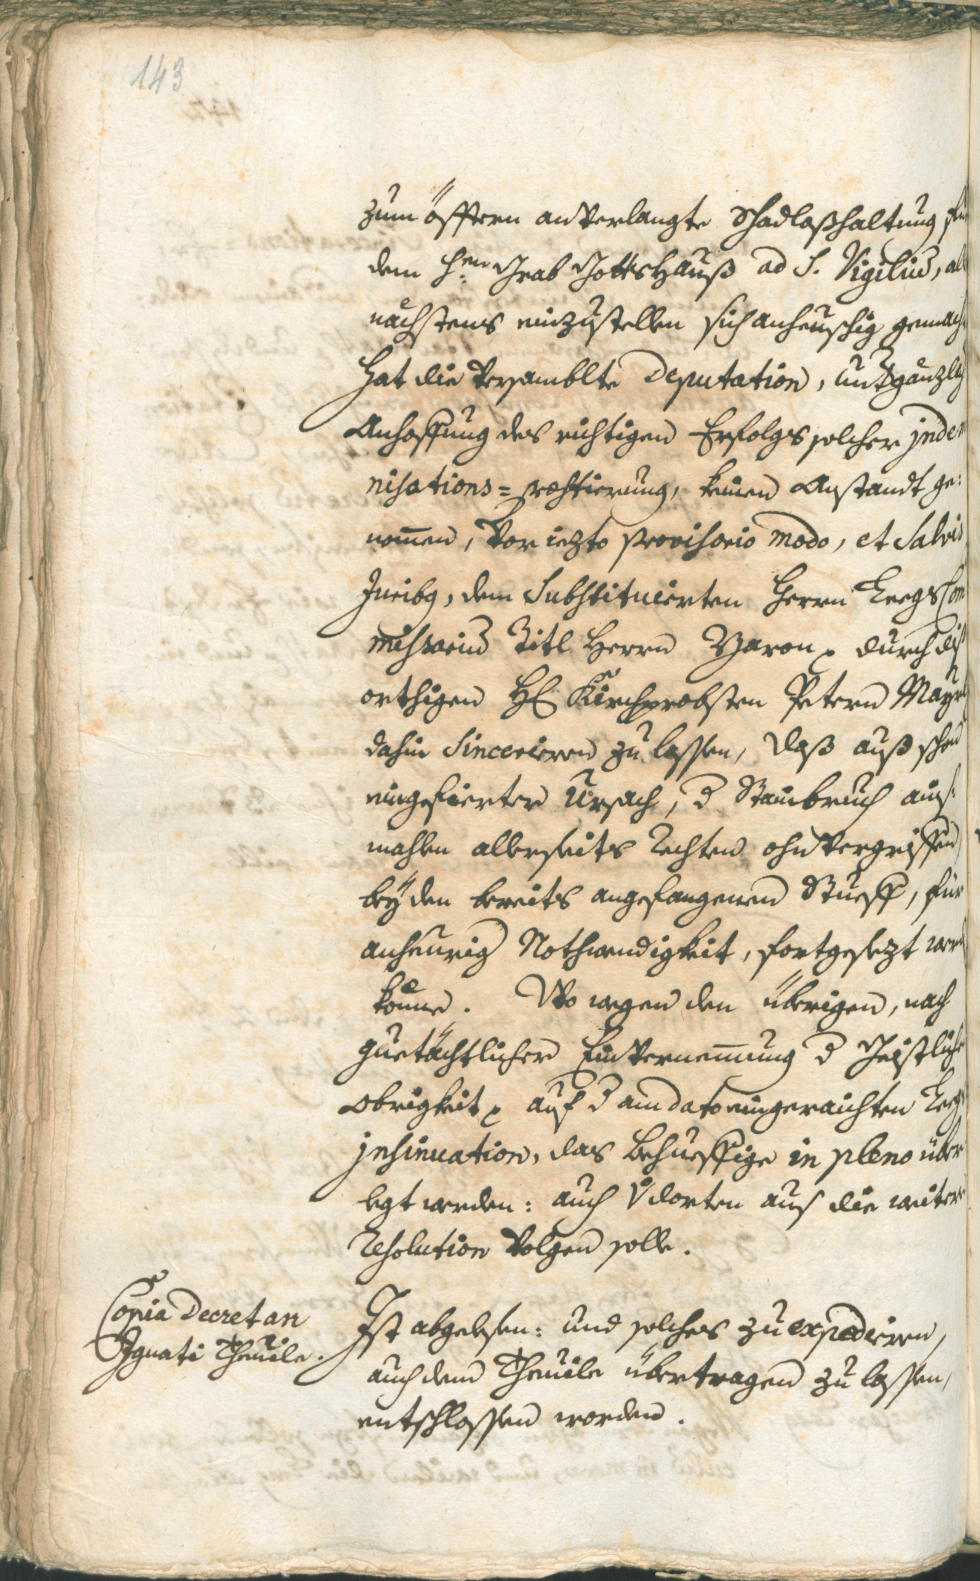 143
zum öfftern an Verlangte Schadloßhaltung
dem H: Grab GottsHauß ad S. Vigilium, als
nächstens einzustellen sich anheuschig gemacht
Hat die Versamblte Deputation, umb gänzlich
Anhoffung des richtigen Erfolgs solcher jndem
nisations= , keinen Anstandt ge:
nomen, Vor iezto provisorio modo, et Salvis
Juribg, dem Substituierten Herrn Kriegs Com
missario Titl Herrn durch die
orthigen H: Kirchprobsten Petern Mayr
dahin Sincerieren zu lassen, daß auß schon
eingefierter Ursach, d Stainbruch auf
mahlen allerseits Rechten ohn Vergriffen
bey den bereits angefangenen Stueff, für
anheurig Nothwendigkeit, fortgesezt werden
könne. Wo wegen den übrigen, nach
guetächtlicher Einvernemung d Geistlichen
Obrigkeit, auf d am dato eingeraichten
jnsinuation, das Behueffige in pleno über
legt werden: auch Vdorten auf die weitere
Resolution Volgen solle.
Copia Decret an
Ignati Theuile.
Ist abgelesen: und solches zu expedieren,
auch dem Theuile übertragen zu lassen,
entschlossen worden.